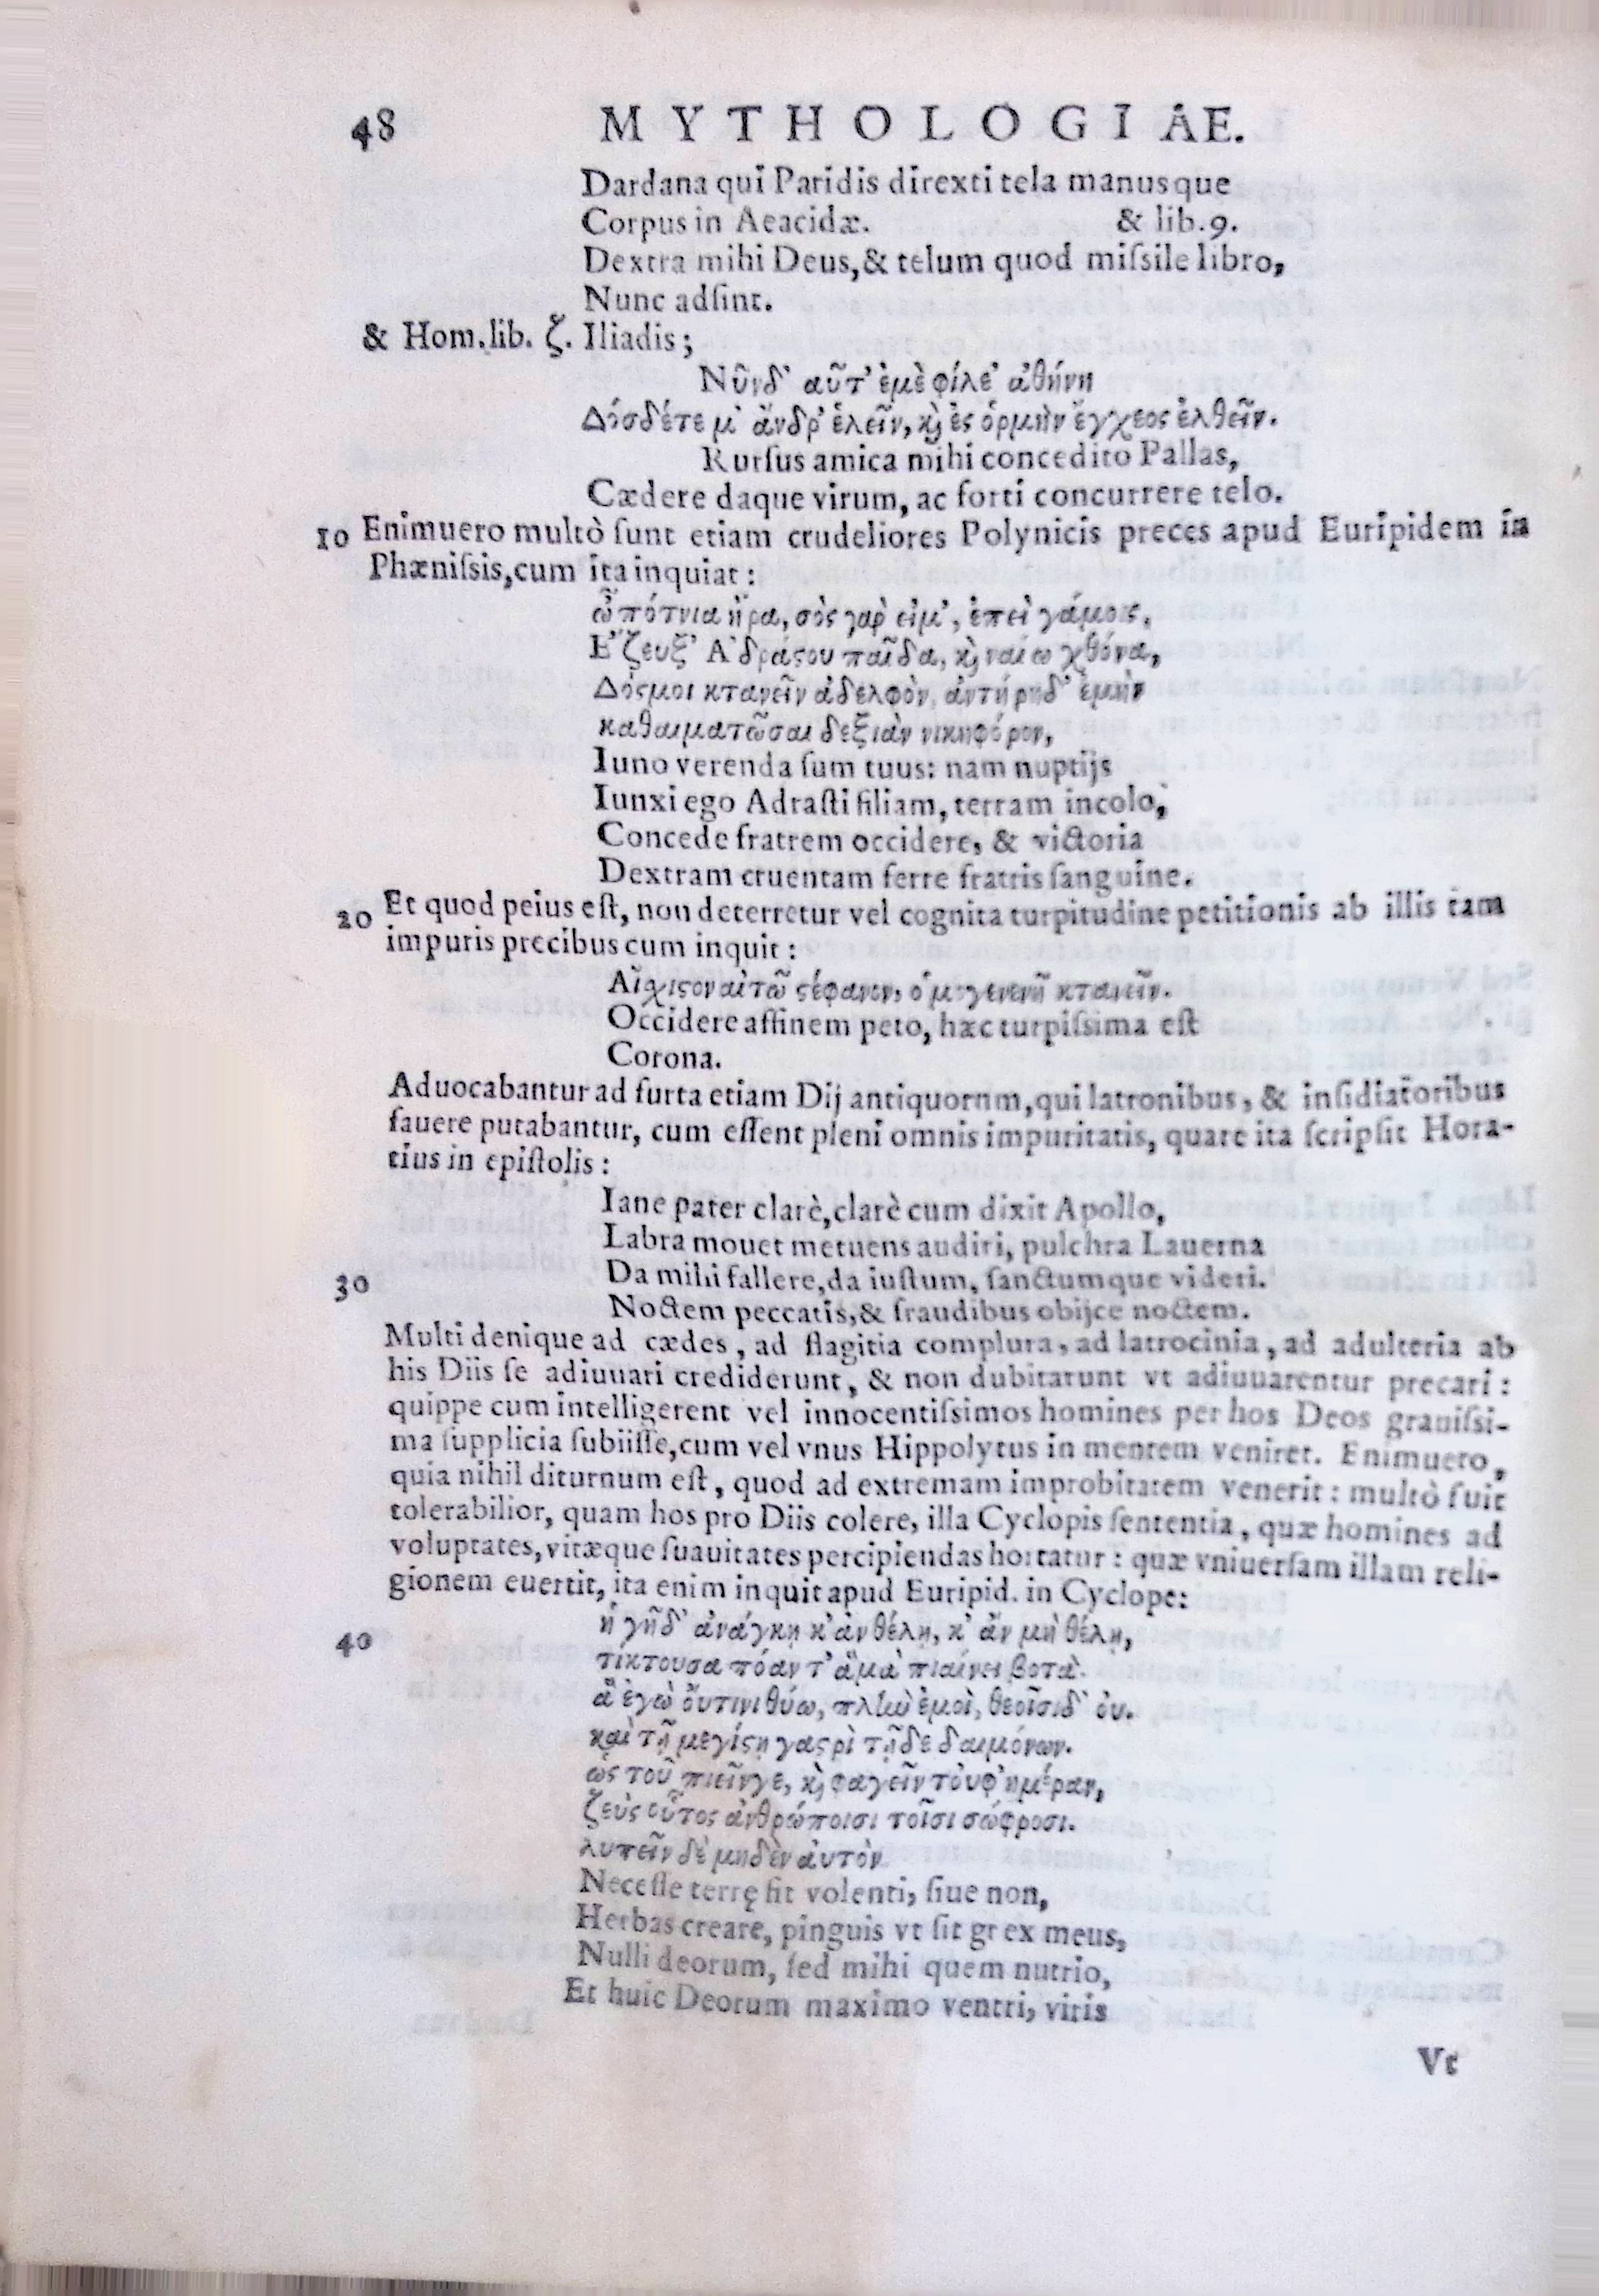 48 MYTHOLOGIAE.
Dardana qui Paridis direxti tela manusque
Corpus in Aeacidæ. & lib.9.
Dextra mihi Deus,& telum quod miſsile libro,
Nunc adſint.
& Hom.lib. ζ. Iliadis;
Νῦνδ' αὖτ' ἐμὲ φίλε' ἀθήνη
Δόσδέτε μ' ἄνδρ' ἑλεῖν, κ̀ ἐς ὁρμὴν ἔγχεος ἐλθεῖν.
Rurſus amica mihi concedito Pallas,
Cædere daque virum, ac forti concurrere telo.
10 Enimuero multò ſunt etiam crudeliores Polynicis preces apud Euripidem in
Phæniſsis,cum ita inquiat:
ὦ πότνια ἥρα, σὸς γαρ εἰμ', ἐπεὶ γάμοις,
Ε῎ζευξ' Α᾿δράςου παῖδα, κ̀ ναίω χθόνα,
Δόςμοι κτανεῖν ἀδελφὸν, ἀντήρηδ' ἐμὴν
καθαιματῶσαι δεξιὰν νικηφόρον,
Iuno verenda ſum tuus: nam nuptijs
Iunxi ego Adraſti filiam, terram incolo,
Concede fratrem occidere, & victoria
Dextram cruentam ferre fratris ſanguine.
20 Et quod peius eſt, non deterretur vel cognita turpitudine petitionis ab illis tam
impuris precibus cum inquit:
Αἴχιςον αἰτῶ ςέφανον, ὁμογενενῆ κτανεῖν.
Occidere affinem peto, hæc turpiſsima eſt
Corona.
Aduocabantur ad furta etiam Dij antiquorum,qui latronibus, & inſidiatoribus
fauere putabantur, cum eſſent pleni omnis impuritatis, quare ita ſcripſit Hora-
tius in epiſtolis:
Iane pater clarè,clarè cum dixit Apollo,
Labra mouet metuens audiri, pulchra Lauerna
30 Da mihi fallere,da iuſtum, ſanctumque videri.
Noctem peccatis,& fraudibus obijce noctem.
Multi denique ad cædes, ad flagitia complura, ad latrocinia, ad adulteria ab
his Diis ſe adiuuari crediderunt, & non dubitarunt vt adiuuarentur precari:
quippe cum intelligerent vel innocentiſsimos homines per hos Deos grauiſsi-
ma ſupplicia ſubiiſſe,cum vel vnus Hippolytus in mentem veniret. Enimuero,
quia nihil diturnum eſt, quod ad extremam improbitatem venerit: multò fuit
tolerabilior, quam hos pro Diis colere, illa Cyclopis ſententia, quæ homines ad
voluptates,vitæque ſuauitates percipiendas hortatur: quæ vniuerſam illam reli-
gionem euertit, ita enim inquit apud Euripid. in Cyclope:
40 ἡ γῆδ' ἀνάγκῃ κ'ἀν θέλῃ, κ' ἄν μὴ θέλῃ,
τίκτουσα πόαν τ' ἄμὰ πιαίνει βοτὰ.
ἃ ἐγὼ ὄυτινι θύω, πλὴν ἐμοὶ, θεοῖσιδ' ὀυ.
καὶ τῇ μεγίςῃ γαςρὶ τῇδε δαιμόνων.
ὡς τοῦ πιεῖνγε, κ̀ φαγεῖν τὀυφ'ημέραν,
ζεὺς οὗτος ἀνθρώποισι τοῖσι σώφροσι.
λυπεῖν δὲ μηδὲν ἀυτὸν
Neceſſe terrę ſit volenti, ſiue non,
Herbas creare, pinguis vt ſit grex meus,
Nulli deorum, ſed mihi quem nutrio,
Et huic Deorum maximo ventri, viris
Vt